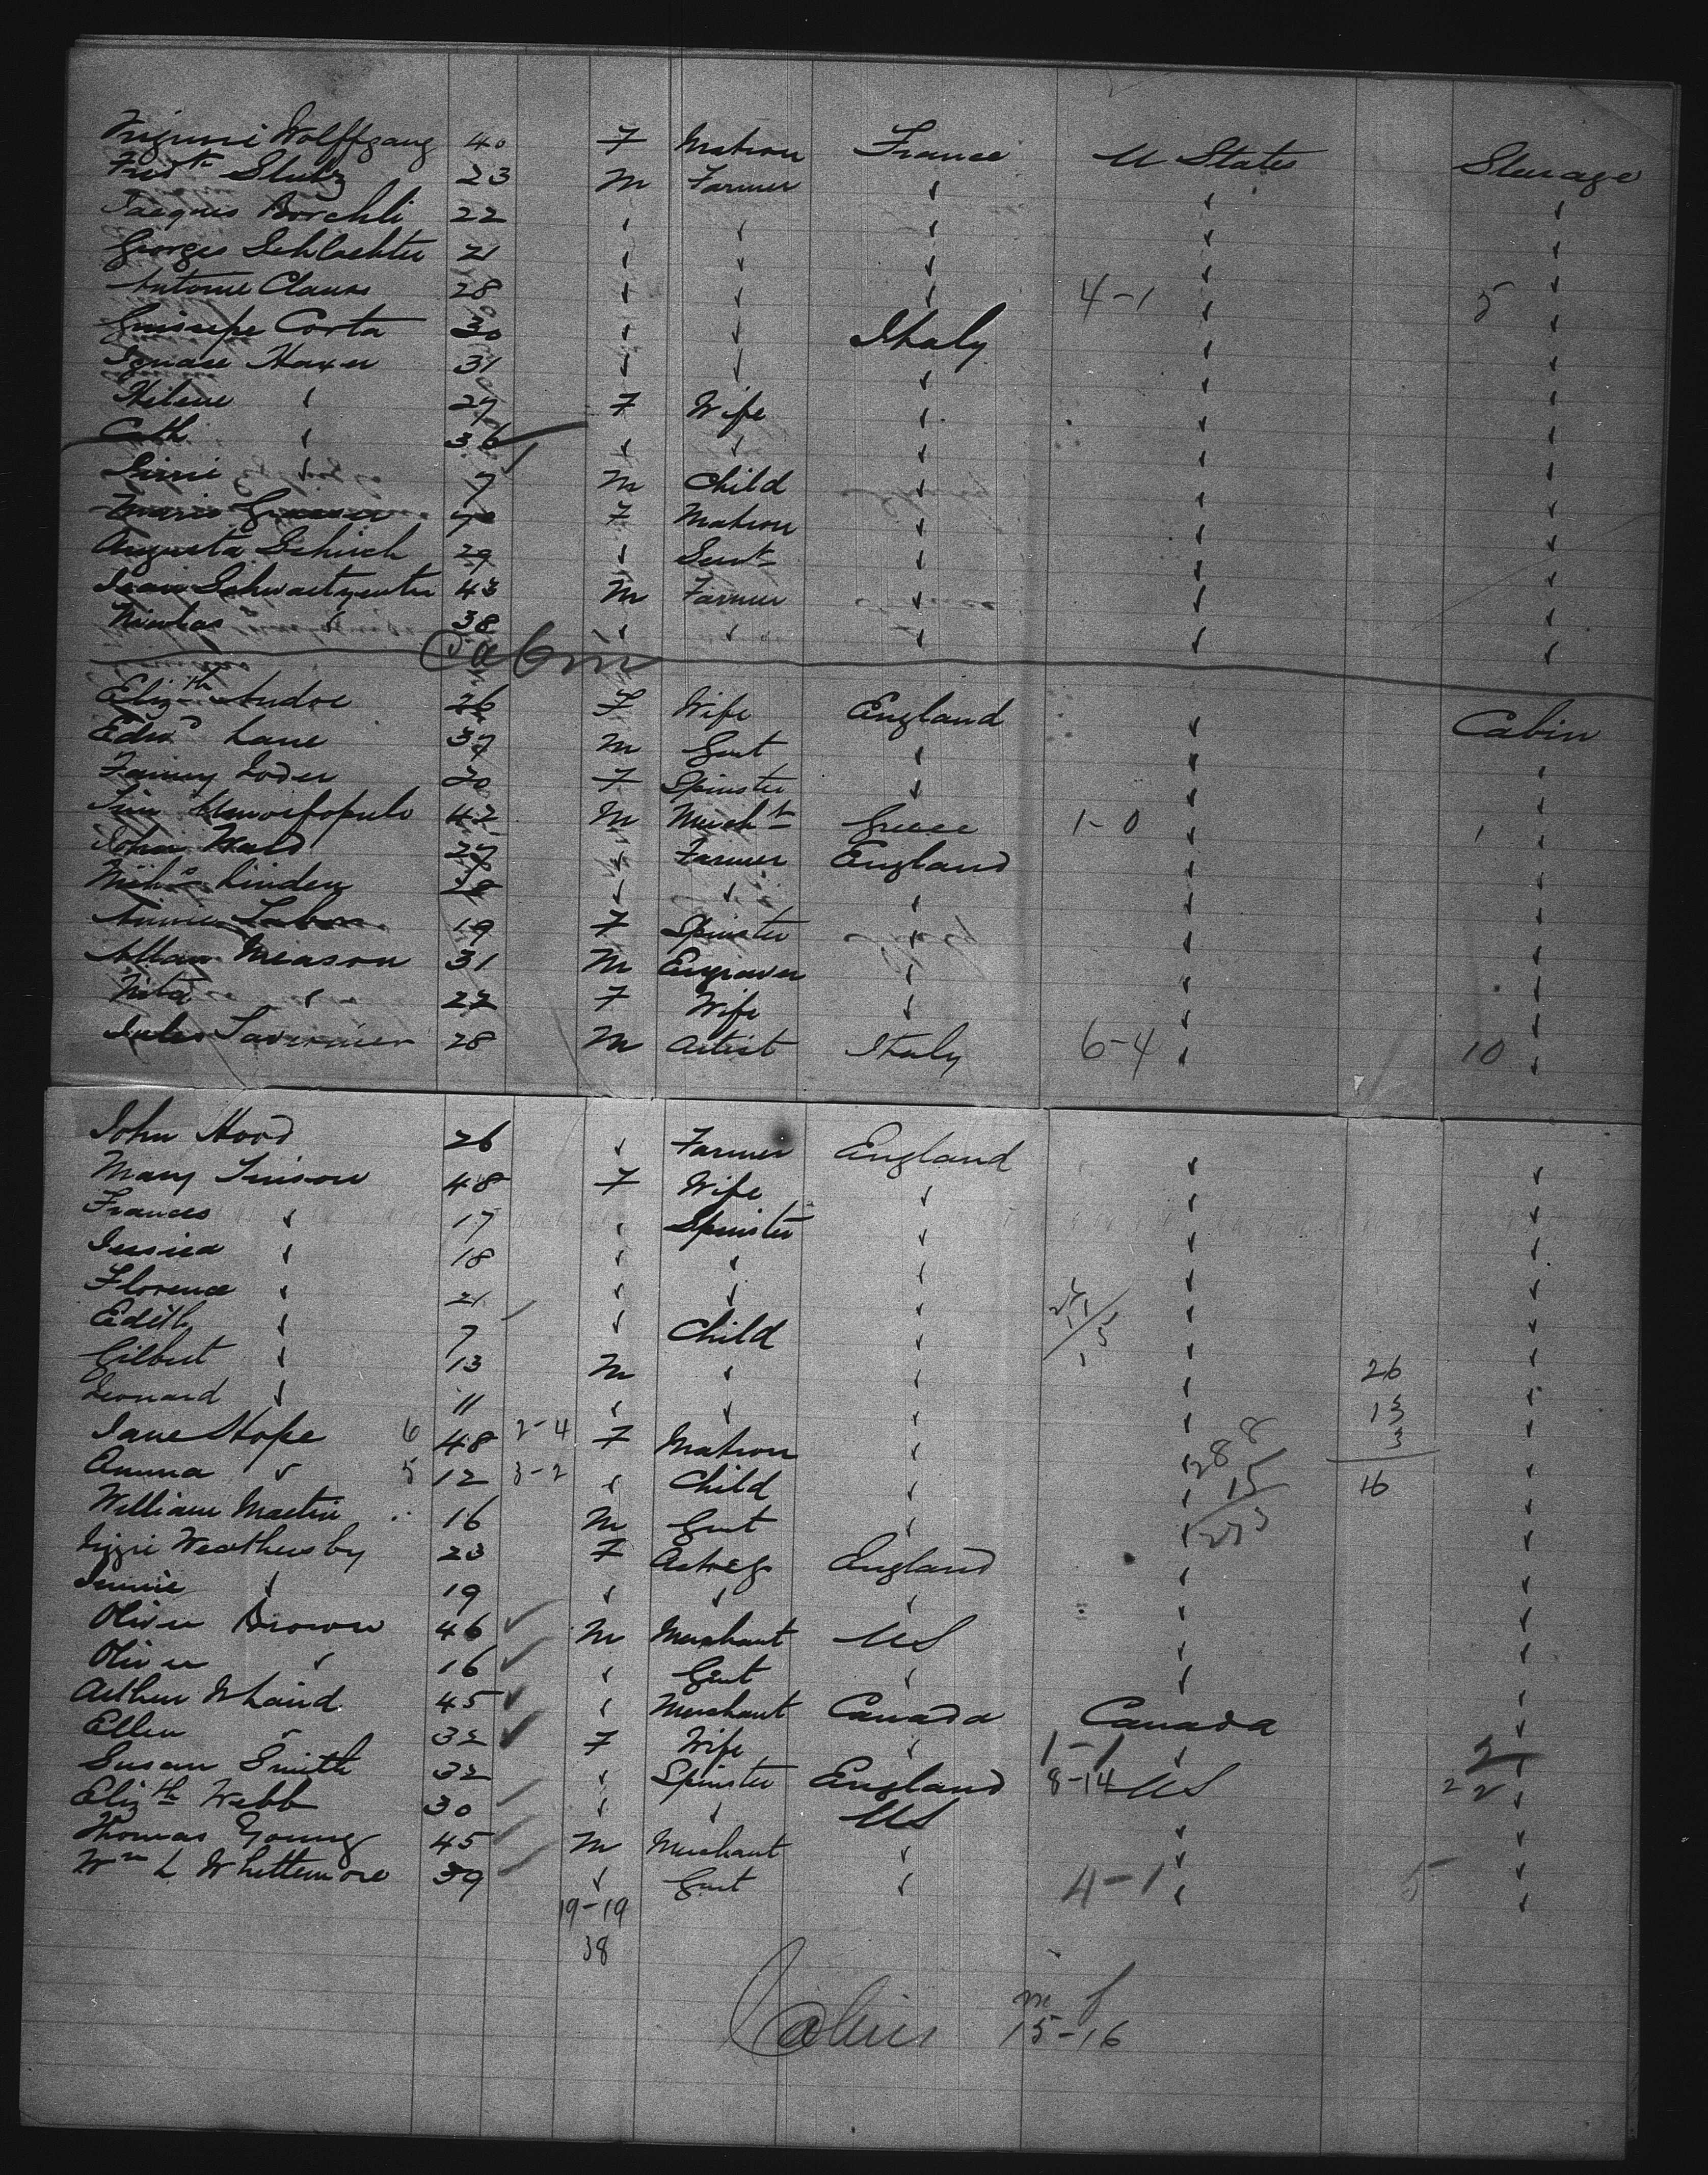 Wolffgang 40 F Matron France U States Sterage
Fredk Stutz 23 M Farmer ✓ ✓ ✓
Jacques Borchli 22 ✓ ✓ ✓ ✓ ✓
Georges Schlachter 21 ✓ ✓ ✓ ✓ ✓
Antoine Claus 28 ✓ ✓ ✓ 4-1 ✓ 5 ✓
Guisepe Costa 30 ✓ ✓ Italy ✓ ✓
Ignace Haxer 31 ✓ ✓ ✓ ✓ ✓
Helene ✓ 27 F Wife ✓ ✓ ✓
Cath ✓ 36 ✓ ✓ ✓ ✓ ✓
✓ 7 M Child ✓ ✓ ✓
Marie F Matron ✓ ✓ ✓
Augusta Schirch 29 ✓ Servt ✓ ✓ ✓
Jean 43 M Farmer ✓ ✓ ✓
Nicolas ✓ 38 ✓ ✓ ✓ ✓ ✓
Cabin
Elizth Andoe 26 F Wife England ✓ Cabin
Edwd Lane 37 M Gent ✓ ✓ ✓
Fanny Loder 20 F Spinster ✓ ✓ ✓
42 M Mercht Greece 1-0 ✓ 1 ✓
John Ward 27 ✓ Farmer England ✓ ✓
Nichs Linden 28 ✓ ✓ ✓ ✓ ✓
Annie 19 F Spinster ✓ ✓ ✓
Allan Meason 31 M Engraver ✓ ✓ ✓
Nita ✓ 22 F Wife ✓ ✓ ✓
Jules Tavernier 28 M Artist Italy 6-4 ✓ 10 ✓
John Hood 26 ✓ Farmer England ✓ ✓
Mary Tinson 48 F Wife ✓ ✓ ✓
Frances ✓ 17 ✓ Spinster ✓ ✓ ✓
Jessica ✓ 18 ✓ ✓ ✓ ✓ ✓
Florence ✓ 21 ✓ ✓ ✓ ✓ ✓
Edith ✓ 7 ✓ Child ✓ ✓ ✓
Gilbert ✓ 13 M ✓ ✓ ✓ 26 ✓
Leonard ✓ 11 ✓ ✓ ✓ ✓ 13 ✓
Jane Hope 6 48 2-4 F Matron ✓ 288 3 ✓
Amma ✓ 5 12 3-2 ✓ Child ✓ 15 16 ✓
William Martin 16 M Gent ✓ 273 ✓
Lizzie Weathersby 23 F Actress England ✓ ✓
Jennie ✓ 19 ✓ ✓ ✓ ✓ ✓
Oliver Brown 46 ✓ M Merchant US ✓ ✓
Oliver ✓ 16 ✓ ✓ Gent ✓ ✓ ✓
Arthur W Laird 45 ✓ ✓ Merchant Canada Canada ✓
Ellen ✓ 32 ✓ F Wife ✓ 1-1 ✓ 2
Susan Smith 32 ✓ Spinster England 8-14 US 22 ✓
Elizth Webb 30 ✓ ✓ ✓ US ✓ ✓
Thomas Young 45 ✓ M Merchant ✓ ✓ ✓
Wm L Whittemore 39 ✓ ✓ Gent ✓ 4-1 ✓ 5 ✓
19-19
38
m f
Cabin 15-16